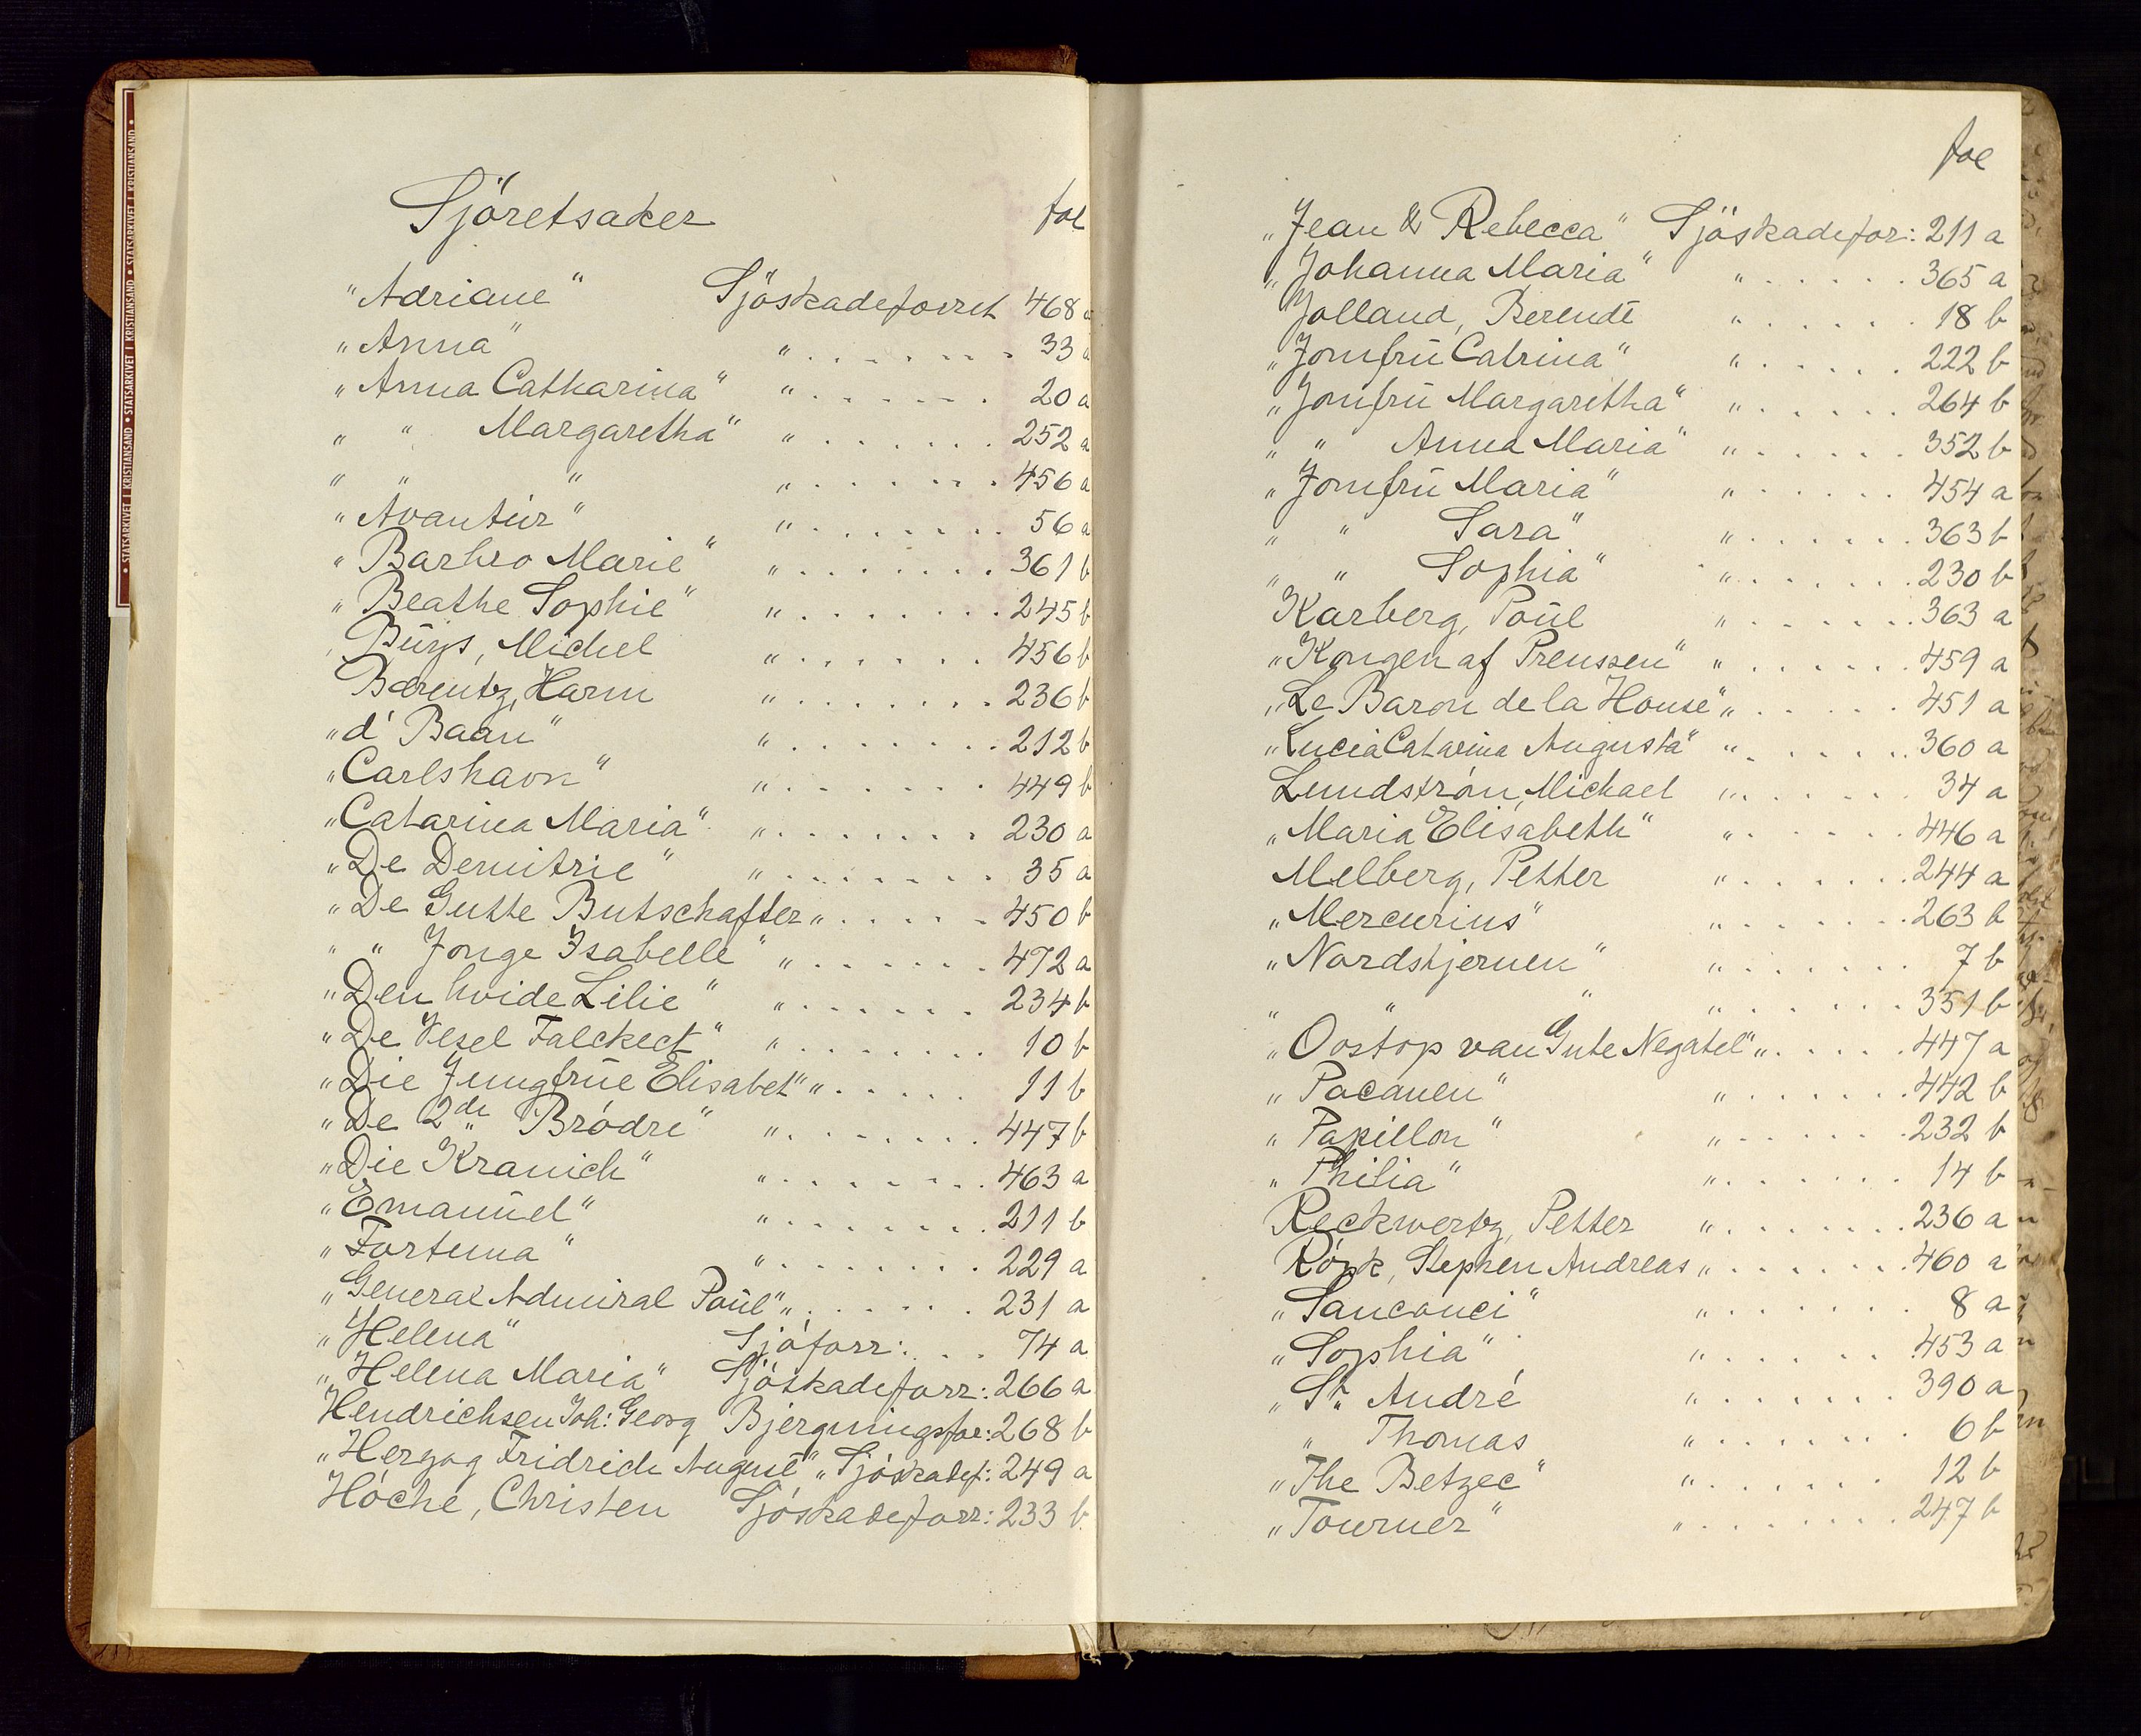 • STATSARKIVET I KRISTIANSAND • STATSARKIVET I KRISTIANSAND • STATSARKIVET I KRISTIANSAND •
Sjöretsaker fol
"Adriane" Sjöskadeforret 468 a
"Anna" " . . . . . . . 33 a
"Anna Catharina" " . . . . . . . 20 a
" " Margaretha" " . . . . . . . 252 a
" " " " . . . . . . . 456 a
"Avantür" " . . . . . . . 56 a
"Barbro Marie" " . . . . . . . 361 b
"Beathe Sophie" " . . . . . . . 245 b
Büys, Michel " . . . . . . . 456 b
Bærentz, Harm " . . . . . . . 236 b
"d' Baan" " . . . . . . . 212 b
"Carlshavn" " . . . . . . . 449 b
"Catarina Maria" " . . . . . . . 230 a
"De Demitrie" " . . . . . . . 35 a
"De Gutte Butschafter " . . . . . 450 b
" " Jonge Isabelle" " . . . . . . 472 a
"Den hvide Lilie" " . . . . . . 234 b
"De Vesel Falckect" " . . . . . . . 10 b
"Die Jungfrüe Elisabet" " . . . . . 11 b
"De 2de Brödre" " . . . . . . . 447 b
"Die Kranich" " . . . . . . . 463 a
"Emanüel" " . . . . . . . 211 b
"Fortuna" " . . . . . . . 229 a
"General Admiral Paül" " . . . . . . 231 a
"Helena" Sjöforr: . . . 74 a
"Helena Maria" Sjöskadeforr: 266 a
Hendrichsen Joh: Georg Bjergningsfor: 268 b
"Herzog Fridrich August" " Sjöskadef: 249 a
Höche, Christen Sjöskadeforr: 233 b
fol
"Jean & Rebecca" Sjöskadefor: 211 a
"Johanna Maria" " . . . . . . 365 a
Jolland, Berendt " . . . . . . 18 b
"Jomfrü Catrina" " . . . . . . 222 b
"Jomfrü Margaretha" " . . . . . . 264 b
" " Anna Maria" " . . . . . . 352 b
"Jomfrü Maria" " . . . . . . 454 a
" " Sara" " . . . . . . 363 b
" " Sophia" " . . . . . . 230 b
Karberg, Poül " . . . . . . 363 a
"Kongen af Preussen" " . . . . . . 459 a
"Le Baron de la House" " . . . . . 451 a
"Lucia Catarina Augusta" " . . . . . 360 a
Lundström, Michael " . . . . . . 34 a
"Maria Elisabeth" " . . . . . . 446 a
Melberg, Petter " . . . . . . 244 a
"Mercurius" " . . . . . . 263 b
"Nordstjernen" " . . . . . . 7 b
" " " " . . . . . . 351 b
"Oostop van Gute Negatel" " . . . . . 447 a
"Pacanen" " . . . . . . 442 b
"Papillon" " . . . . . . 232 b
"Philia" " . . . . . . 14 b
Reckwertz, Petter " . . . . . . 236 a
Rörk, Stephen Andreas " . . . . . . 460 a
"Sanconci" " . . . . . . 8 a
"Sophia" " . . . . . . 453 a
"St. André " . . . . . . 390 a
" Thomas " . . . . . . 6 b
"The Betzec" " . . . . . . 12 b
"Tourner" " . . . . . . 247 b